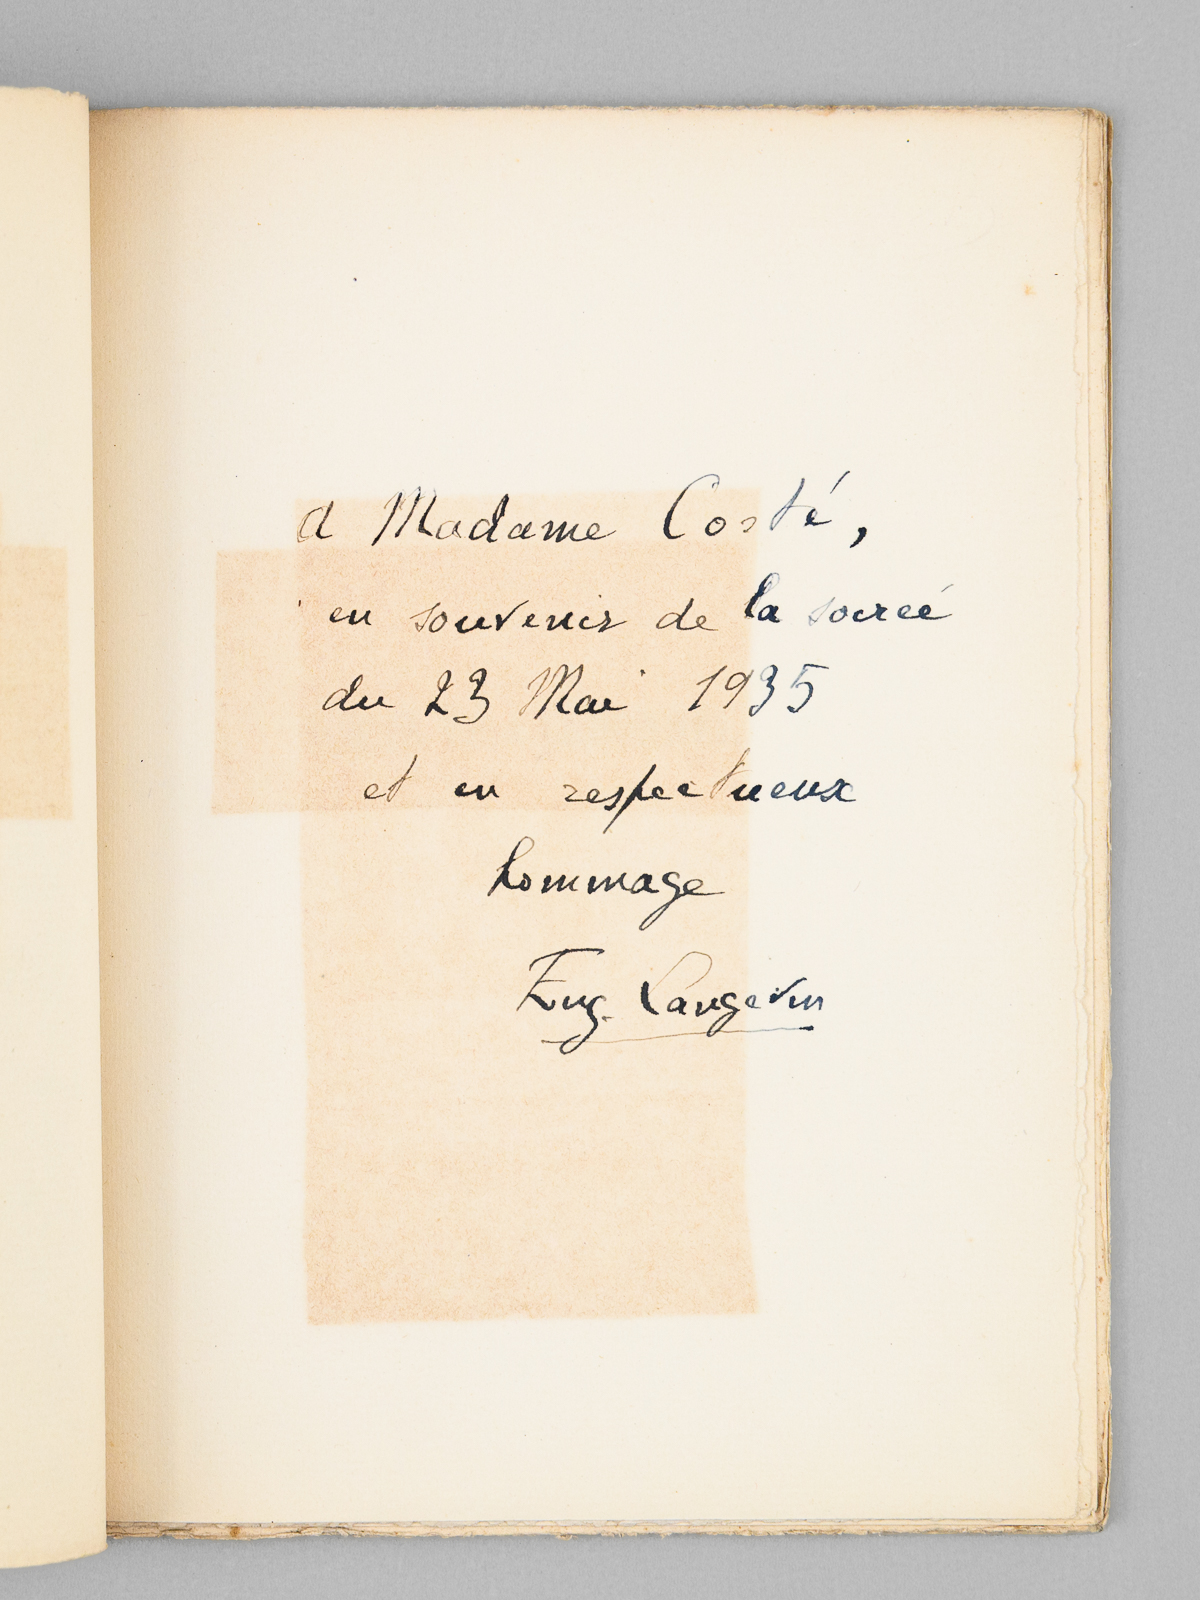 à Madame Costé,
en souvenir de la soireé
du 23 Mai 1935
et en respectueux
hommage
Eug. Langevin